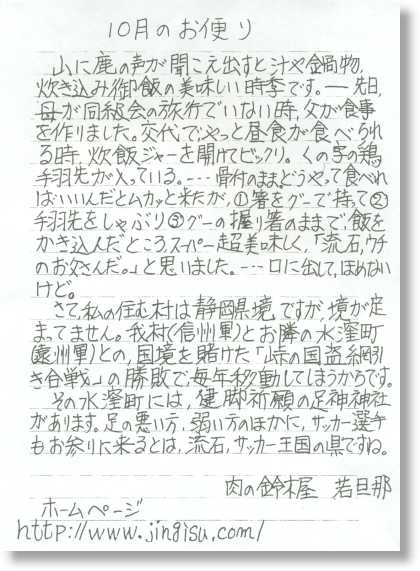 10月のお便り
山に鹿の声が聞こえ出すと汁や鍋物,
炊き込み御飯の美味しい時季です。― 先日,
母が同級会の旅行でいない時,父が食事
を作りました。交代でやっと昼食が食べられ
る時,炊飯ジャーを開けてビックリ。くの字の鶏
手羽先が入っている。---骨付のまま,どうやって食べれ
ばいいんだとムカッと来たが,①箸をグーで持って②
手羽先をしゃぶり③グーの握り箸のままで,飯を
かき込んだところ,スーパー超美味しく,「流石,ウチ
のお父さんだ。」と思いました。---口に出して,ほめない
けど。
さて,私の住む村は静岡県境ですが,境が定
まってません。我村(信州軍)とお隣の水窪町
(遠州軍)との,国境を賭けた「峠の国盗り綱引
き合戦」の勝敗で,毎年移動してしまうからです。
その水窪町には,健脚祈願の足神神社
があります。足の悪い方,弱い方のほかに,サッカー選手
もお参りに来るとは,流石,サッカー王国の県ですね。
肉の鈴木屋 若旦那
ホームページ
http://www.jingisu.com/